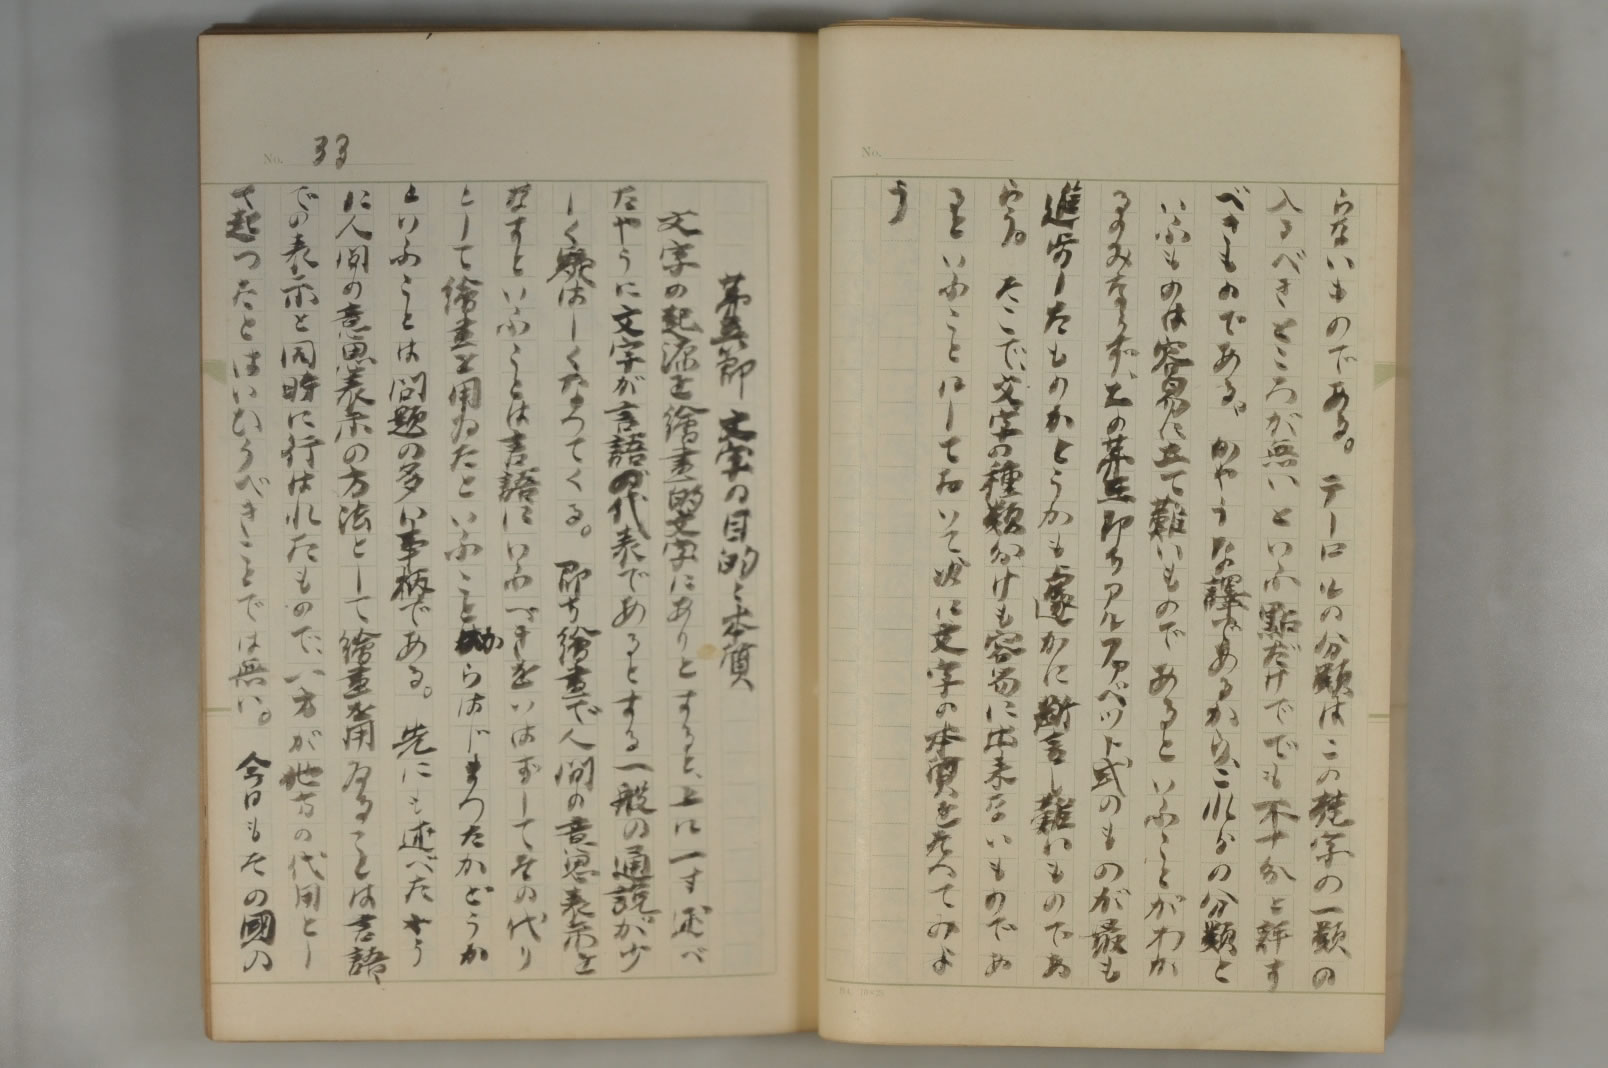 No.
らないものである。テーロルの分類はこの楔字の一類の
入るべきところが無いといふ點だけでも不十分と評す
べきものである。かやうな譯であるから、これらの分類と
いふものは容易に立て難いものであるといふことがわか
るのみならず、どの第五即ちアルファベット式のものが最も
進歩したものかどうかも遽かに斷言し難いものであ
らう。そこで、文字の種類分けも容易に出来ないものであ
るといふことにしておいて次に文字の本質を考へてみよ
う
No. 33
第五節 文字の目的と本質
文字の起源を繪畫的文字にありとすると、上に一寸述べ
たやうに文字が言語の代表であるとする一般の通説が少
しく疑はしくなつてくる。即ち繪畫で人間の意思表示を
なすといふことは言語にいふべきをいはずしてその代り
として繪畫を用ゐたといふことからはじまつたかどうか
といふことは問題の多い事柄である。先にも述べたやう
に人間の意思表示の方法として繪畫を用ゐることは言語
での表示と同時に行はれたもので、一方が他方の代用とし
て起つたとはいひうべきことでは無い。今日もその國の